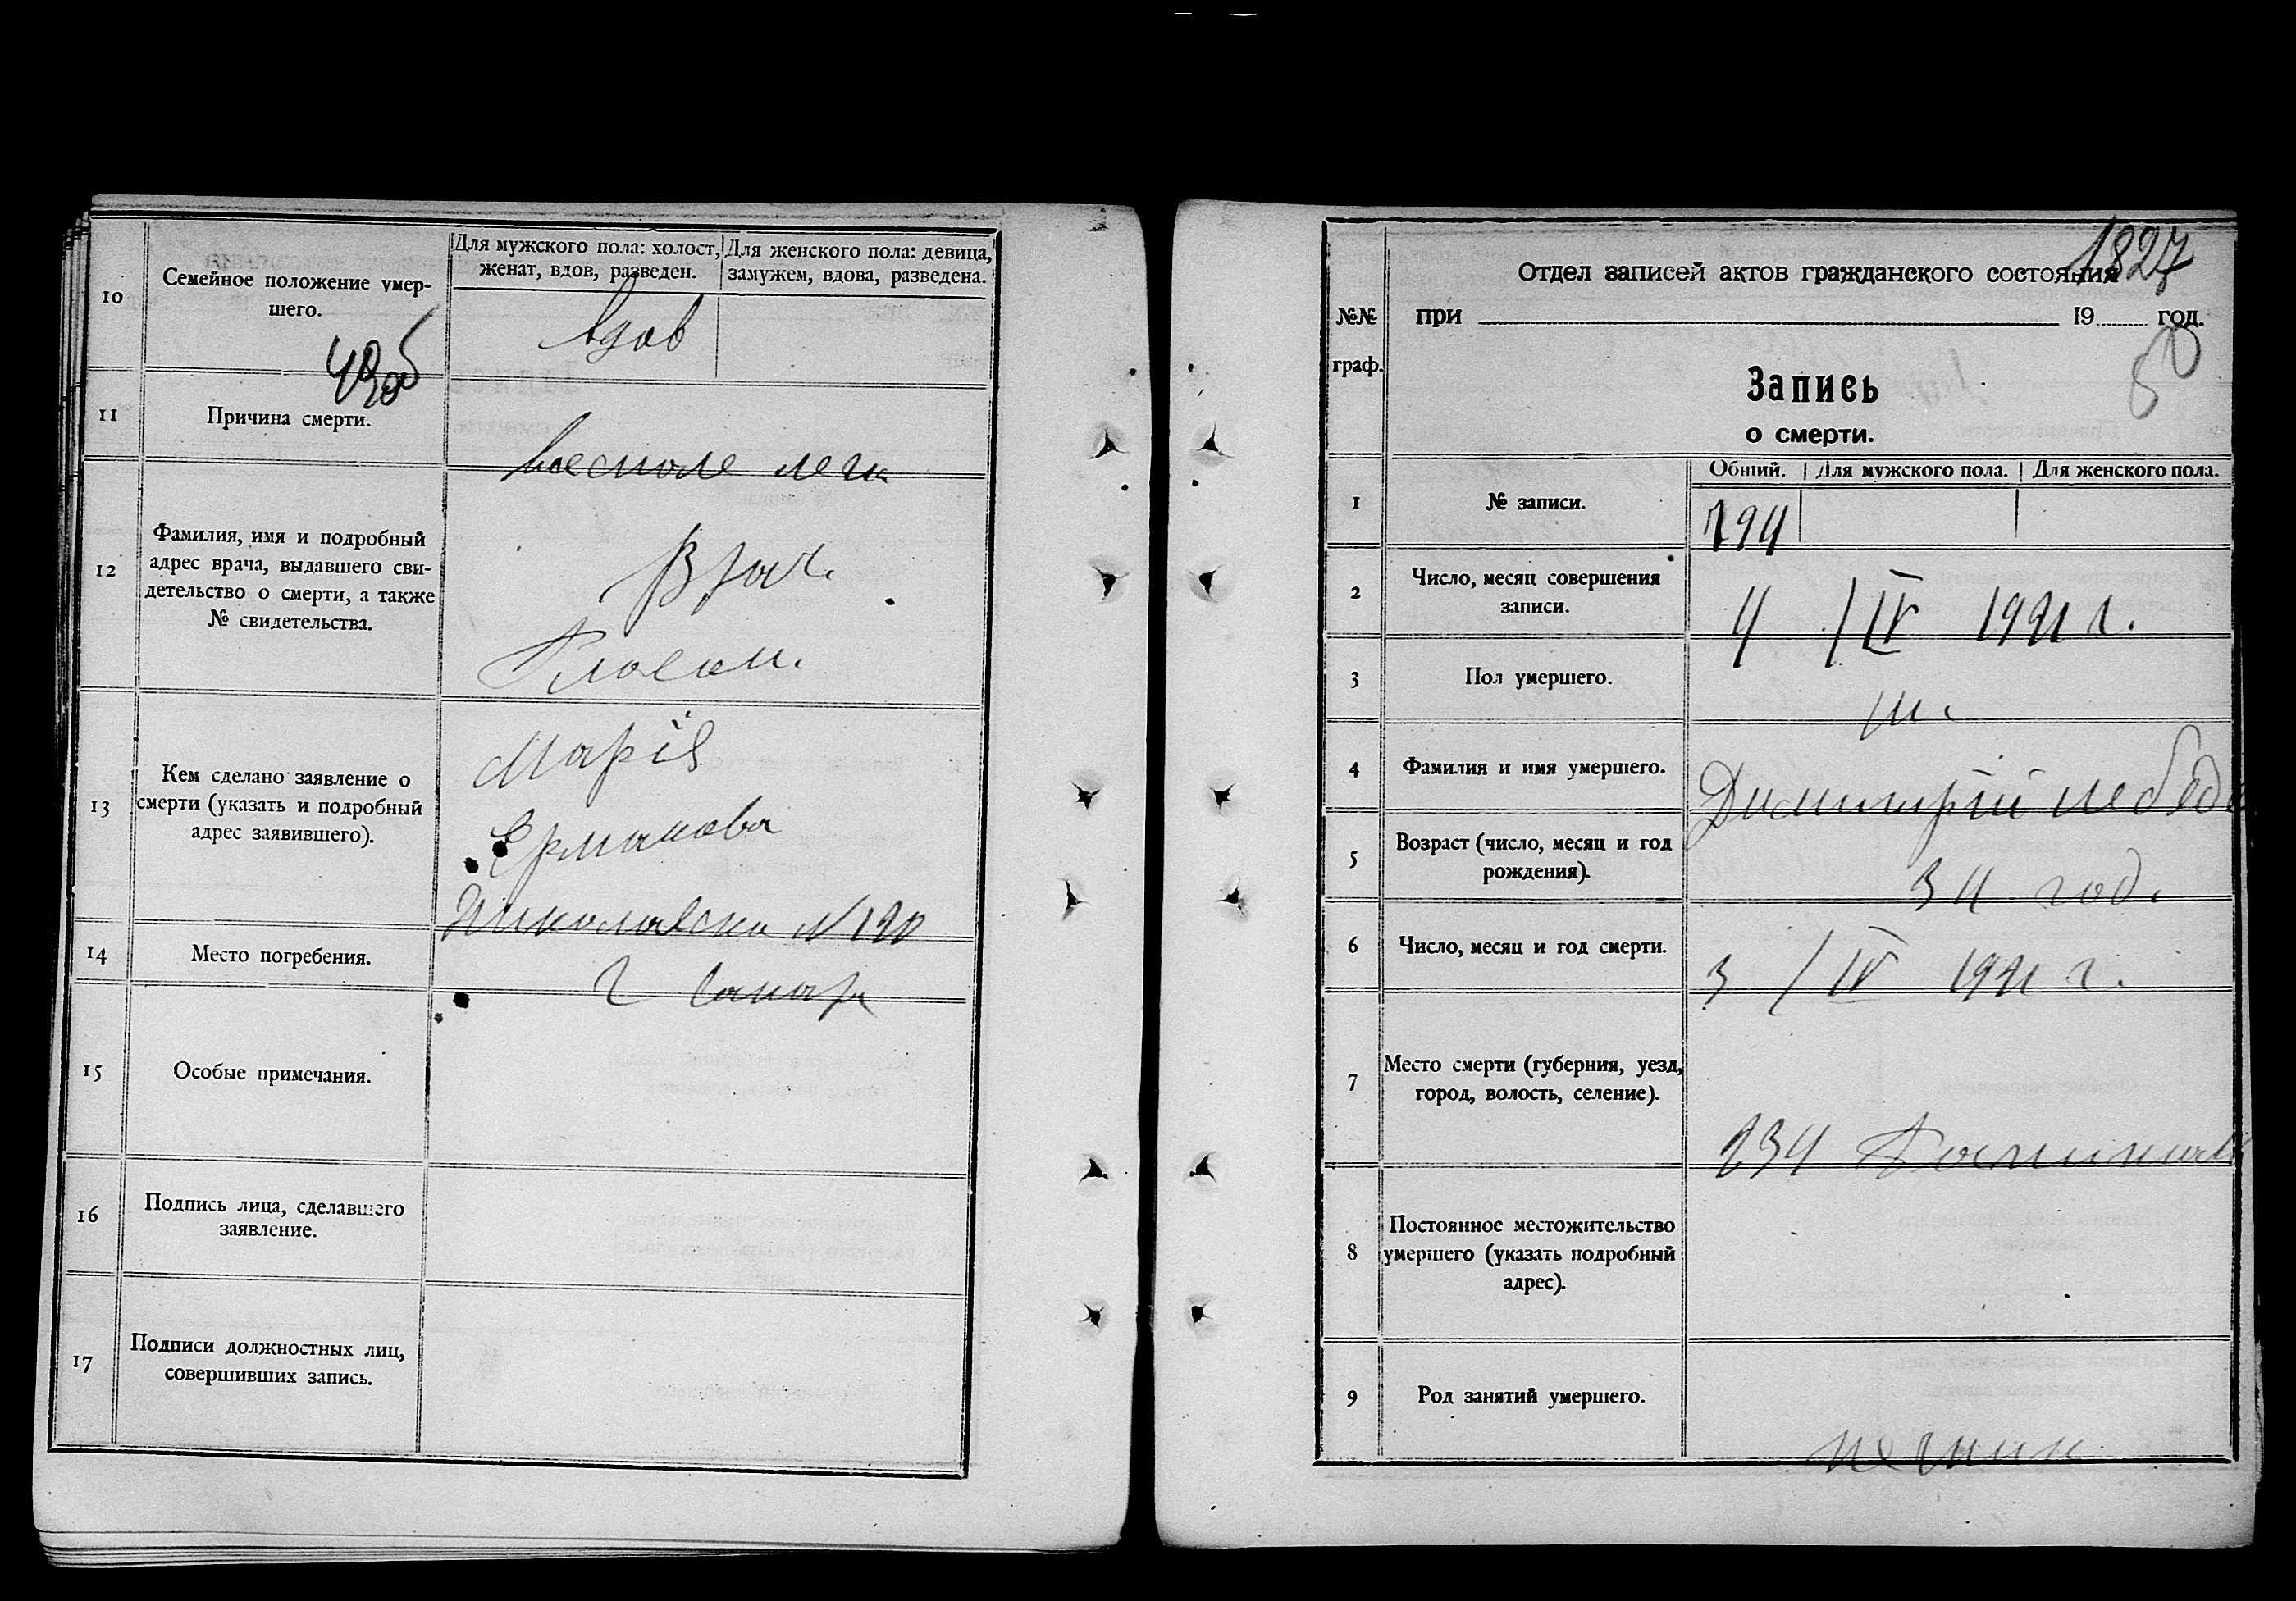 10
Семейное положение умер-
шего.
Для мужского пола: холост,
женат, вдов, разведен.
Для женского пола: девица,
замужем, вдова, разведена.
вдов
11
Причина смерти.
воспале легк
12
Фамилия, имя и подробный
адрес врача, выдавшего сви-
детельство о смерти, а также
№ свидетельства.
Врач.
13
Кем сделано заявление о
смерти (указать и подробный
адрес заявившего).
Марія
Ермакова
Николаевска N 120
14
Место погребения.
г Самара
15
Особые примечания.
16
Подпись лица, сделавшего
заявление.
17
Подписи должностных лиц,
совершивших запись.
1827
№№
граф.
Отдел записей актов гражданского состояния
при 19 год.
50
Запись
о смерти.
Общий. Для мужского пола. Для женского пола.
1
№ записи.
794
2
Число, месяц совершения
записи.
4 / IV 1921 г.
3
Пол умершего.
м.
4
Фамилия и имя умершего.
Димитрій Лебеде
5
Возраст (число, месяц и год
рождения).
34 год.
6
Число, месяц и год смерти.
3 / IV 1921 г.
7
Место смерти (губерния, уезд,
город, волость, селение).
234
8
Постоянное местожительство
умершего (указать подробный
адрес).
9
Род занятий умершего.
печник